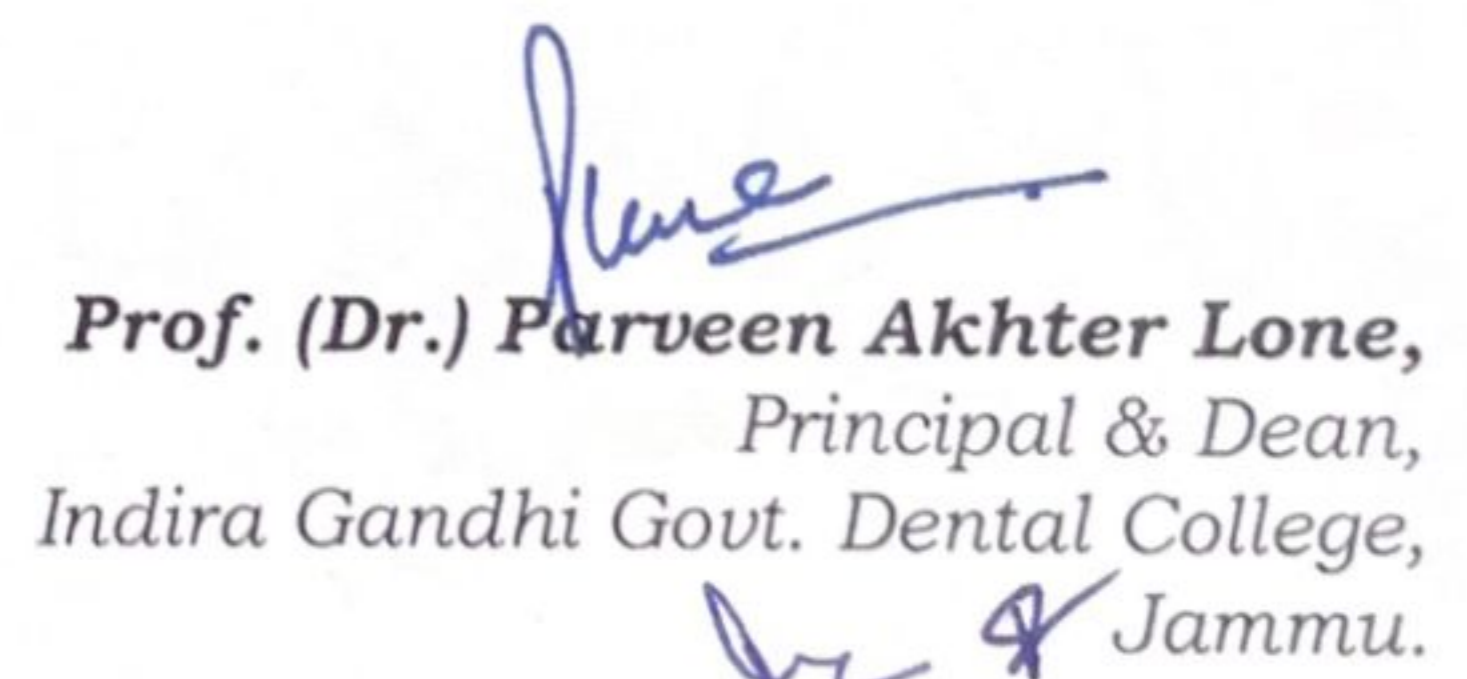 Prof. (Dr.) Parveen Akhter Lone,
Principal & Dean,
Indira Gandhi Govt. Dental College,
Jammu.